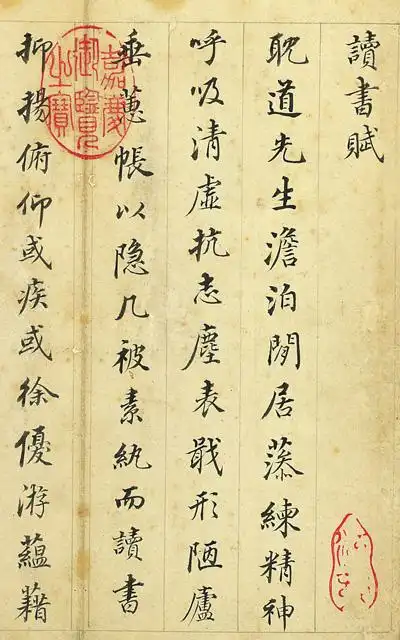 讀書賦
耽道先生澹泊閒居藻練精神
呼吸清虛抗志塵表戢形陋廬
垂蕙帳以隐几被素紈而讀書
抑揚俯仰或疾或徐優游蘊藉
嘉慶御覽之寶